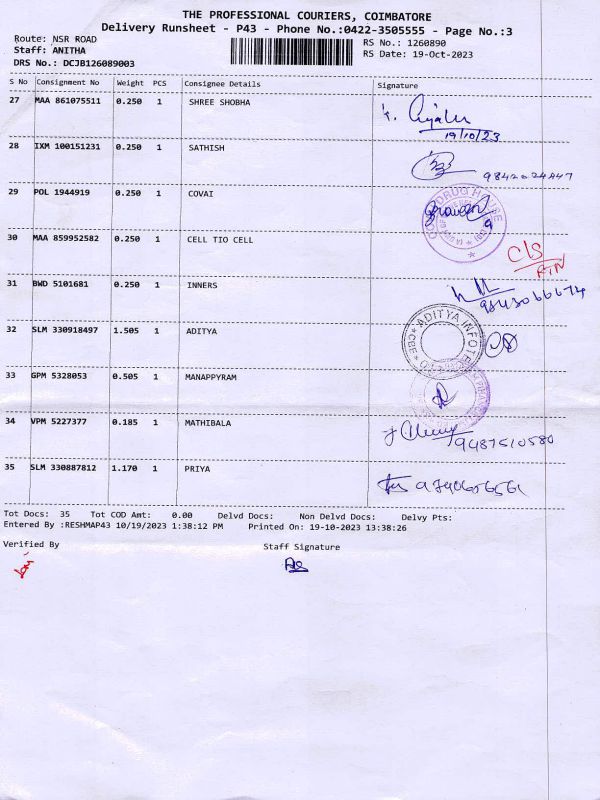 THE PROFESSIONAL COURIERS, COIMBATORE
Delivery Runsheet - P43 - Phone No.:0422-3505555 - Page No.:3
Route: NSR ROAD
RS No.: 1260890
Staff: ANITHA
RS Date: 19-Oct-2023
DRS No.: DCJB126089003
S No Consignment No Weight PCS Consignee Details Signature
27 MAA 861075511 0.250 1 SHREE SHOBHA
19/10/23
28 IXM 100151231 0.250 1 SATHISH
29 POL 1944919 0.250 1 COVAI
30 MAA 859952582 0.250 1 CELL TIO CELL
C/S
31 BWD 5101681 0.250 1 INNERS
9843066674
32 SLM 330918497 1.505 1 ADITYA
ADITYA INFOTE
CBE
33 GPM 5328053 0.505 1 MANAPPYRAM
34 VPM 5227377 0.185 1 MATHIBALA
9487510580
35 SLM 330887812 1.170 1 PRIYA
Tot Docs: 35 Tot COD Amt: 0.00 Delvd Docs: Non Delvd Docs: Delvy Pts:
Entered By :RESHMAP43 10/19/2023 1:38:12 PM Printed On: 19-10-2023 13:38:26
Verified By Staff Signature